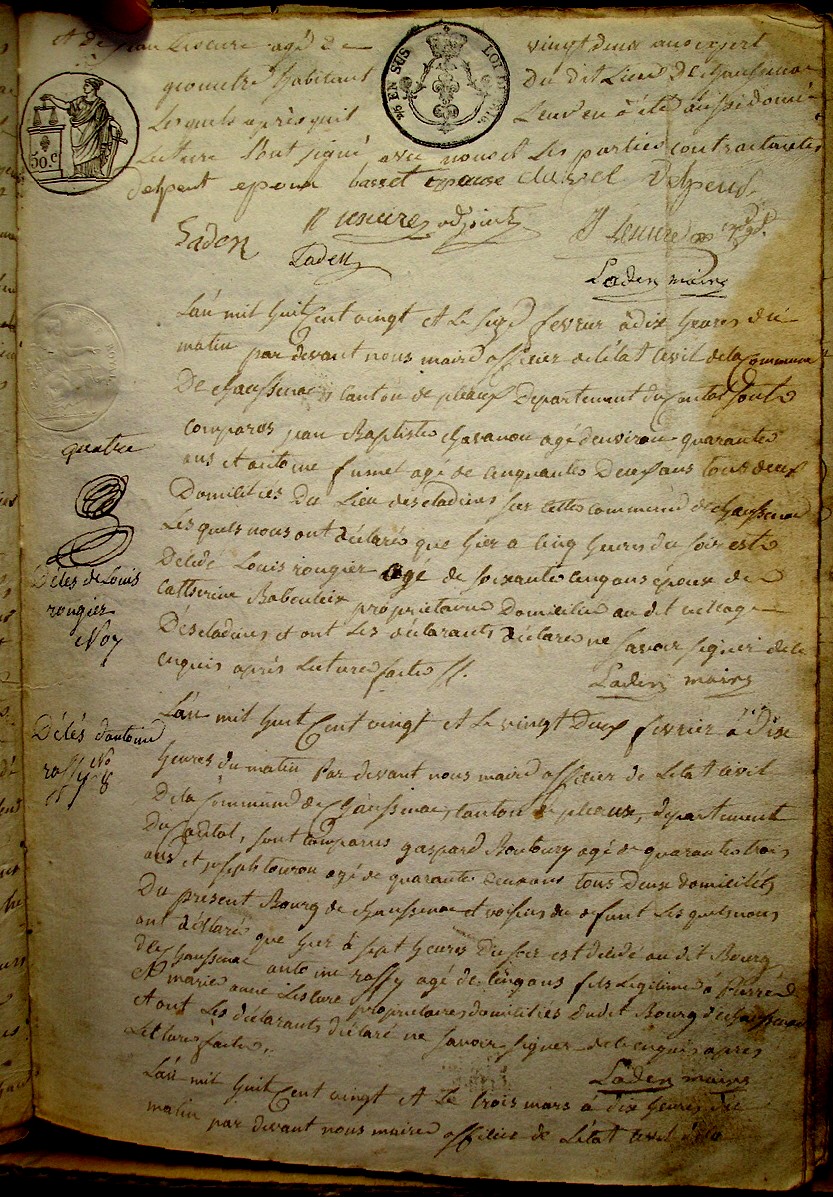 et de jean Lescure agé de vingt deux ans expert
geometre habitant du dit Lieu de chaussenac
Lesquels après quil Leur en a été aussi donné
Lecture sont signé avec nous et Les parties contractantes
delpeut epoux basset epouse Delpeut
¼ EN SUS LOI DE
50.c
Laden Lescure adjoint J Lescure
Laden
Laden maire
L'an mil huit Cent vingt et Le seize fevrier à dix heures du
matin par devant nous maire officier de l'état Civil de la Commune
De chaussenac, canton de pleaux Departement du Cantal sont
comparus jean Baptiste chavanon agé denviron quarante
ans et antoine fumet agé de cinquante Deux ans tous deux
Domiciliés Du Lieu descladines sur cette commune de chaussenac
Les quels nous ont déclaré que hier a cinq heures du soir est
Décédé Louis rougier agé de soixante cinq ans époux de
Catherine Rabouleix propriétaire Domicilié au dit village
Descladines et ont Les déclarants déclaré ne savoir signer de ce
enquis après Lecture faite //.
Laden maire
quatre
Décès de Louis
rougier
No 7
L'an mil huit Cent vingt et Le vingt Deux fevrier à dix
heures du matin Par devant nous maire officier de L'état civil
De la Commune de Chaussenac, canton de pleaux, département
Du Cantal, sont comparus gaspard Boutoury agé de quarante trois
ans et joseph touron agé de quarante deux ans tous Deux domiciliés
Du présent Bourg de chaussenac et voisins du défunt Les quels nous
ont déclaré que hier à sept heures Du soir est décédé au dit Bourg
de Chaussenac antoine raffy agé de cinq ans fils Légitime à Pierre
et marie anne Lescure propriétaires domiciliés du dit Bourg de chaussenac
et ont Les déclarants déclaré ne savoir signer de ce enquis après
Lecture faite.
Laden maire
Décès d'antoine
raffy No
8
L'an mil huit Cent vingt et Le trois mars à dix heures du
matin par devant nous maire officier de L'état civil de la